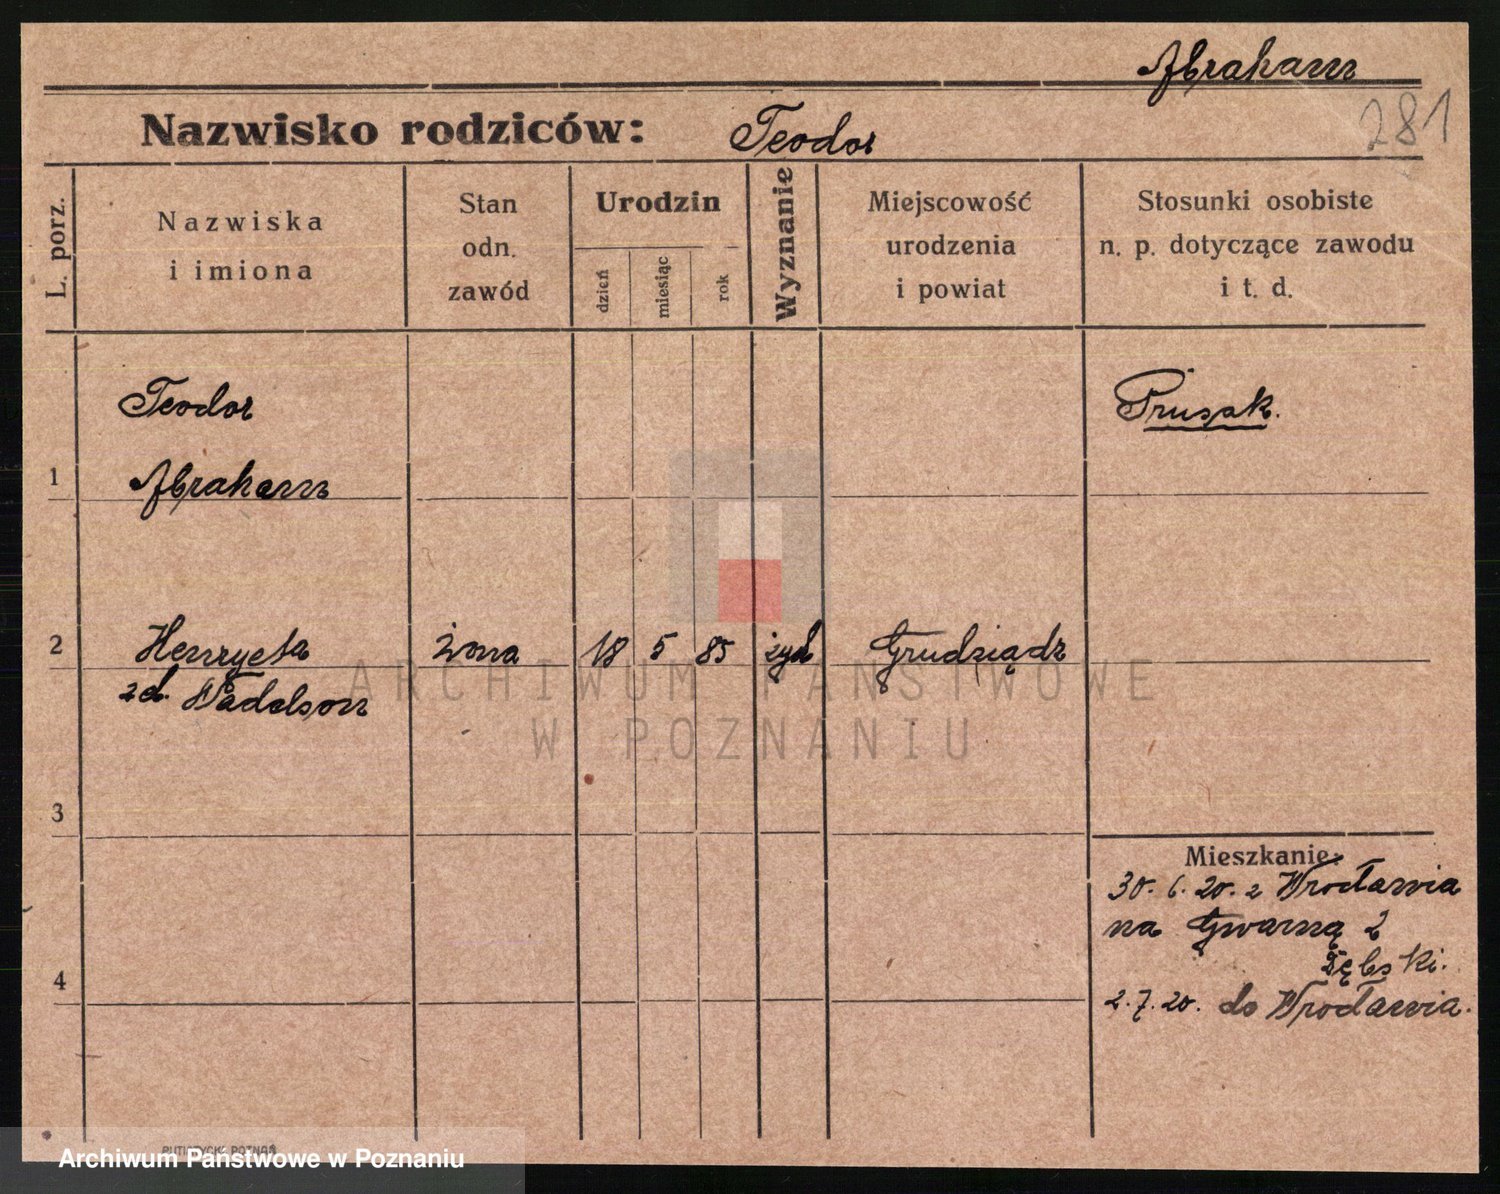 Abraham
281
Nazwisko rodziców: Teodor
L. porz.
Nazwiska
i imiona
Stan
odn.
zawód
Urodzin
dzień
miesiąc
rok
Wyznanie
Miejscowość
urodzenia
i powiat
Stosunki osobiste
n. p. dotyczące zawodu
i t. d.
Teodor
Prusak.
1 Abraham
2 Henryeta żona 18 5 85 żyd Grudziądz
zd. Nadelson
ARCHIWUM PAŃSTWOWE
W POZNANIU
3
Mieszkanie:
30. 6. 20. z Wrocławia
na Gwarną 2
4
2. 7. 20. do Wrocławia.
Archiwum Państwowe w Poznaniu